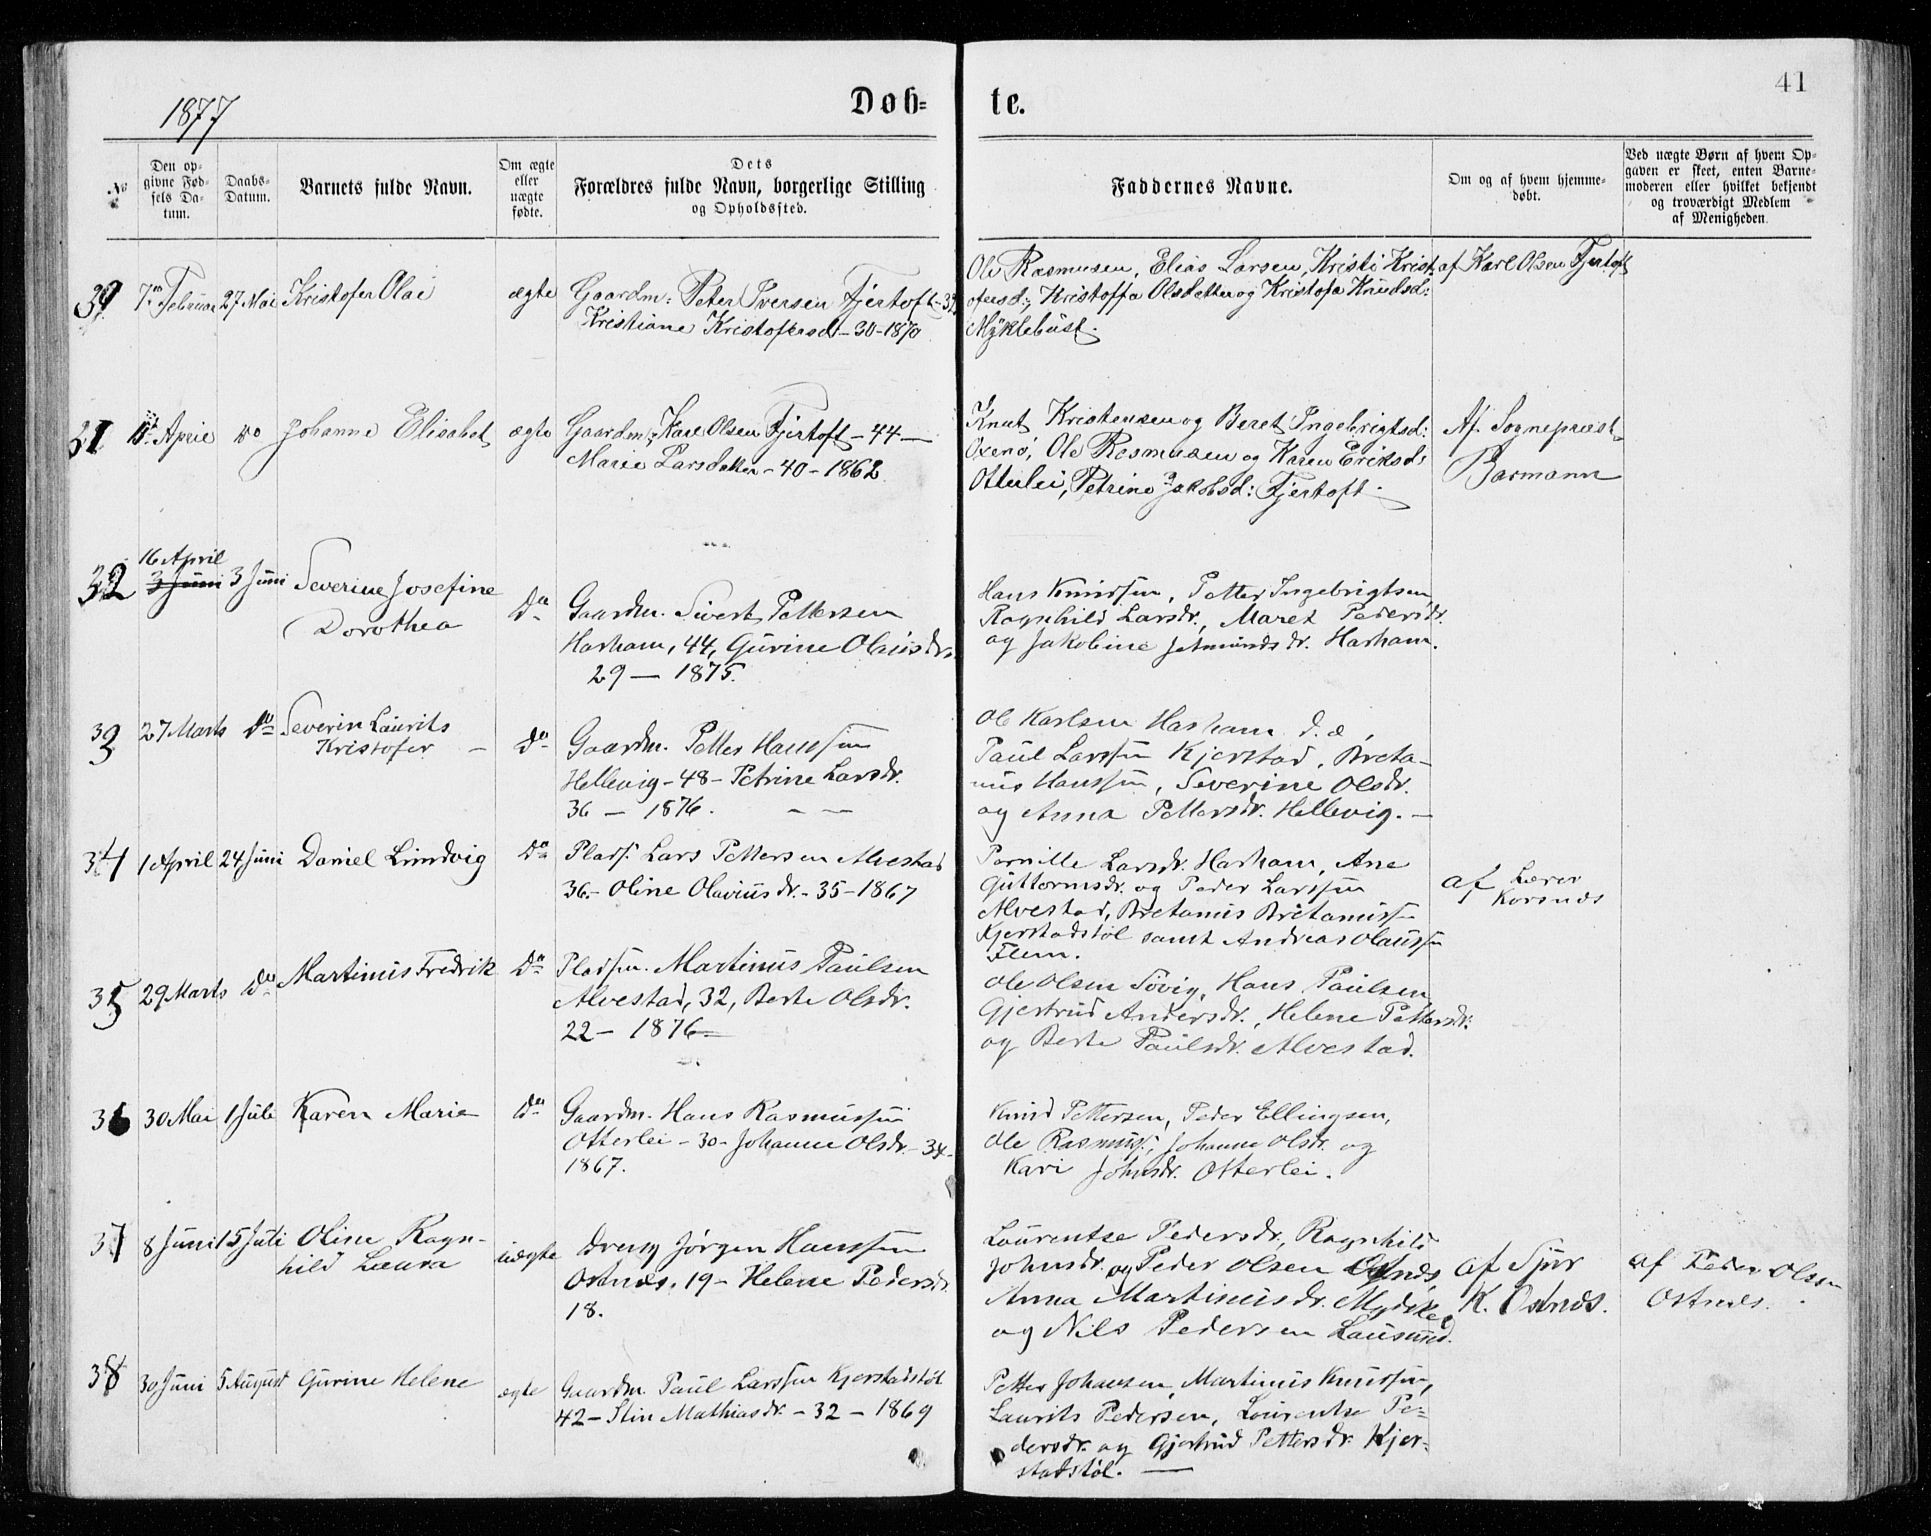 41
1877
Døb-
te.
No
Den op-
givne Fød-
sels Da-
tum.
Daabs-
Datum.
Barnets fulde Navn.
Om ægte
eller
uægte
fødte.
Dets
Forældres fulde Navn, borgerlige Stilling
og Opholdssted.
Faddernes Navne.
Om og af hvem hjemme-
døbt.
Ved uægte Børn af hvem Op-
gaven er skeet, enten Barne-
moderen eller hvilket bekjendt
og troværdigt Medlem
af Menigheden.
7de Februar 27 Mai Kristofer Olai ægte
Gaardm: Peter Iversen Fjertoft
Kristiane Kristofersd - 30 - 1870
Ole Rasmusen, Elias Larsen, Kristi Krist-
ofersd:, Kristoffa Olsdetter og Kristofa Knudsd:
Myklebust.
af Karl Olsen Fjertoft
31 April do Johanne Elisabet ægte
Gaardm: Karl Olsen Fjertoft - 44 -
Marie Larsdatter - 40 - 1862
Knut Kristensen og Beret Ingebrigtsd:
Oxenø, Ole Rasmusen og Karen Eriksd:
Otterlei, Petrine Jakobsd: Fjertoft
Af Sogneprest
Barmann
32 16 April
3 Juni 3 Juni Severine Josefine
Dorothea
Do
Gaardm. Sivert Pettersen
Harham, 44, Gurine Olausdr.
29 - 1875.
Hans Knudsen, Petter Ingebrigtsen,
Ragnhild Larsdr., Maret Pedersdr.
og Jakobine Jetmundsdr. Harham.
33 27 Marts Do Severin Laurits
Kristofer
Do
Gaardm. Petter Hanssen
Hellevig - 48 - Petrine Larsdr.
36 - 1876.
Ole Karlsen Harham d. æ,
Paul Larssen Kjerstad, Breta-
nus Hanssen, Severine Olsdr.
og Anna Pettersdr. Hellevig.
34 1 April 24 Juni Daniel Lindvig Do
Plads. Lars Pettersen Alvestad
36 - Oline Olaviusdr. - 35 - 1867
Pernille Larsdr. Harham, Ane
Guttormsdr. og Peder Larssen
Alvestad, Bretanus Bretanuss.
Kjerstadstøl samt Andreas Olaussen
Flem.
af Lærer
Korsnes
35 29 Marts Do Martinus Fredrik Do
Pladsm. Martinus Paulsen
Alvestad, 32, Berte Olsdr.
22 - 1876
Ole Olsen Søvig, Hans Paulsen
Gjertrud Andersdr., Helene Pettersdr.
og Berte Paulsdr. Alvestad.
36 30 Mai 1 Juli Karen Marie Do
Gaardm. Hans Rasmussen
Otterlei - 30 - Johanne Olsdr. - 34 -
1867.
Knud Pettersen, Peder Ellingsen,
Ole Rasmuss., Johanne Olsdr. og
Kari Johnsdr. Otterlei.
37 8 Juni 15 Juli Oline Ragn-
hild Laura
uægte
Dreng Jørgen Hanssen
Ostnes, 19 - Helene Pedersdr.
18.
Laurentse Pedersdr., Ragnhild
Johnsdr. og Peder Olsen Ostnes,
Anna Martinusdr.
og Nils Pedersen Lausund.
af Sjur
K. Ostnes.
af Peder Olsen
Ostnes.
38 30 Juni 5 August Gurine Helene ægte
Gaardm. Paul Larssen Kjerstadstøl
42 - Stin Mathiasdr. - 32 - 1869
Petter Johansen, Martinus Knudsen,
Laurits Pedersen, Laurentse Pe-
dersdr. og Gjertrud Pettersdr. Kjer-
stadstøl.